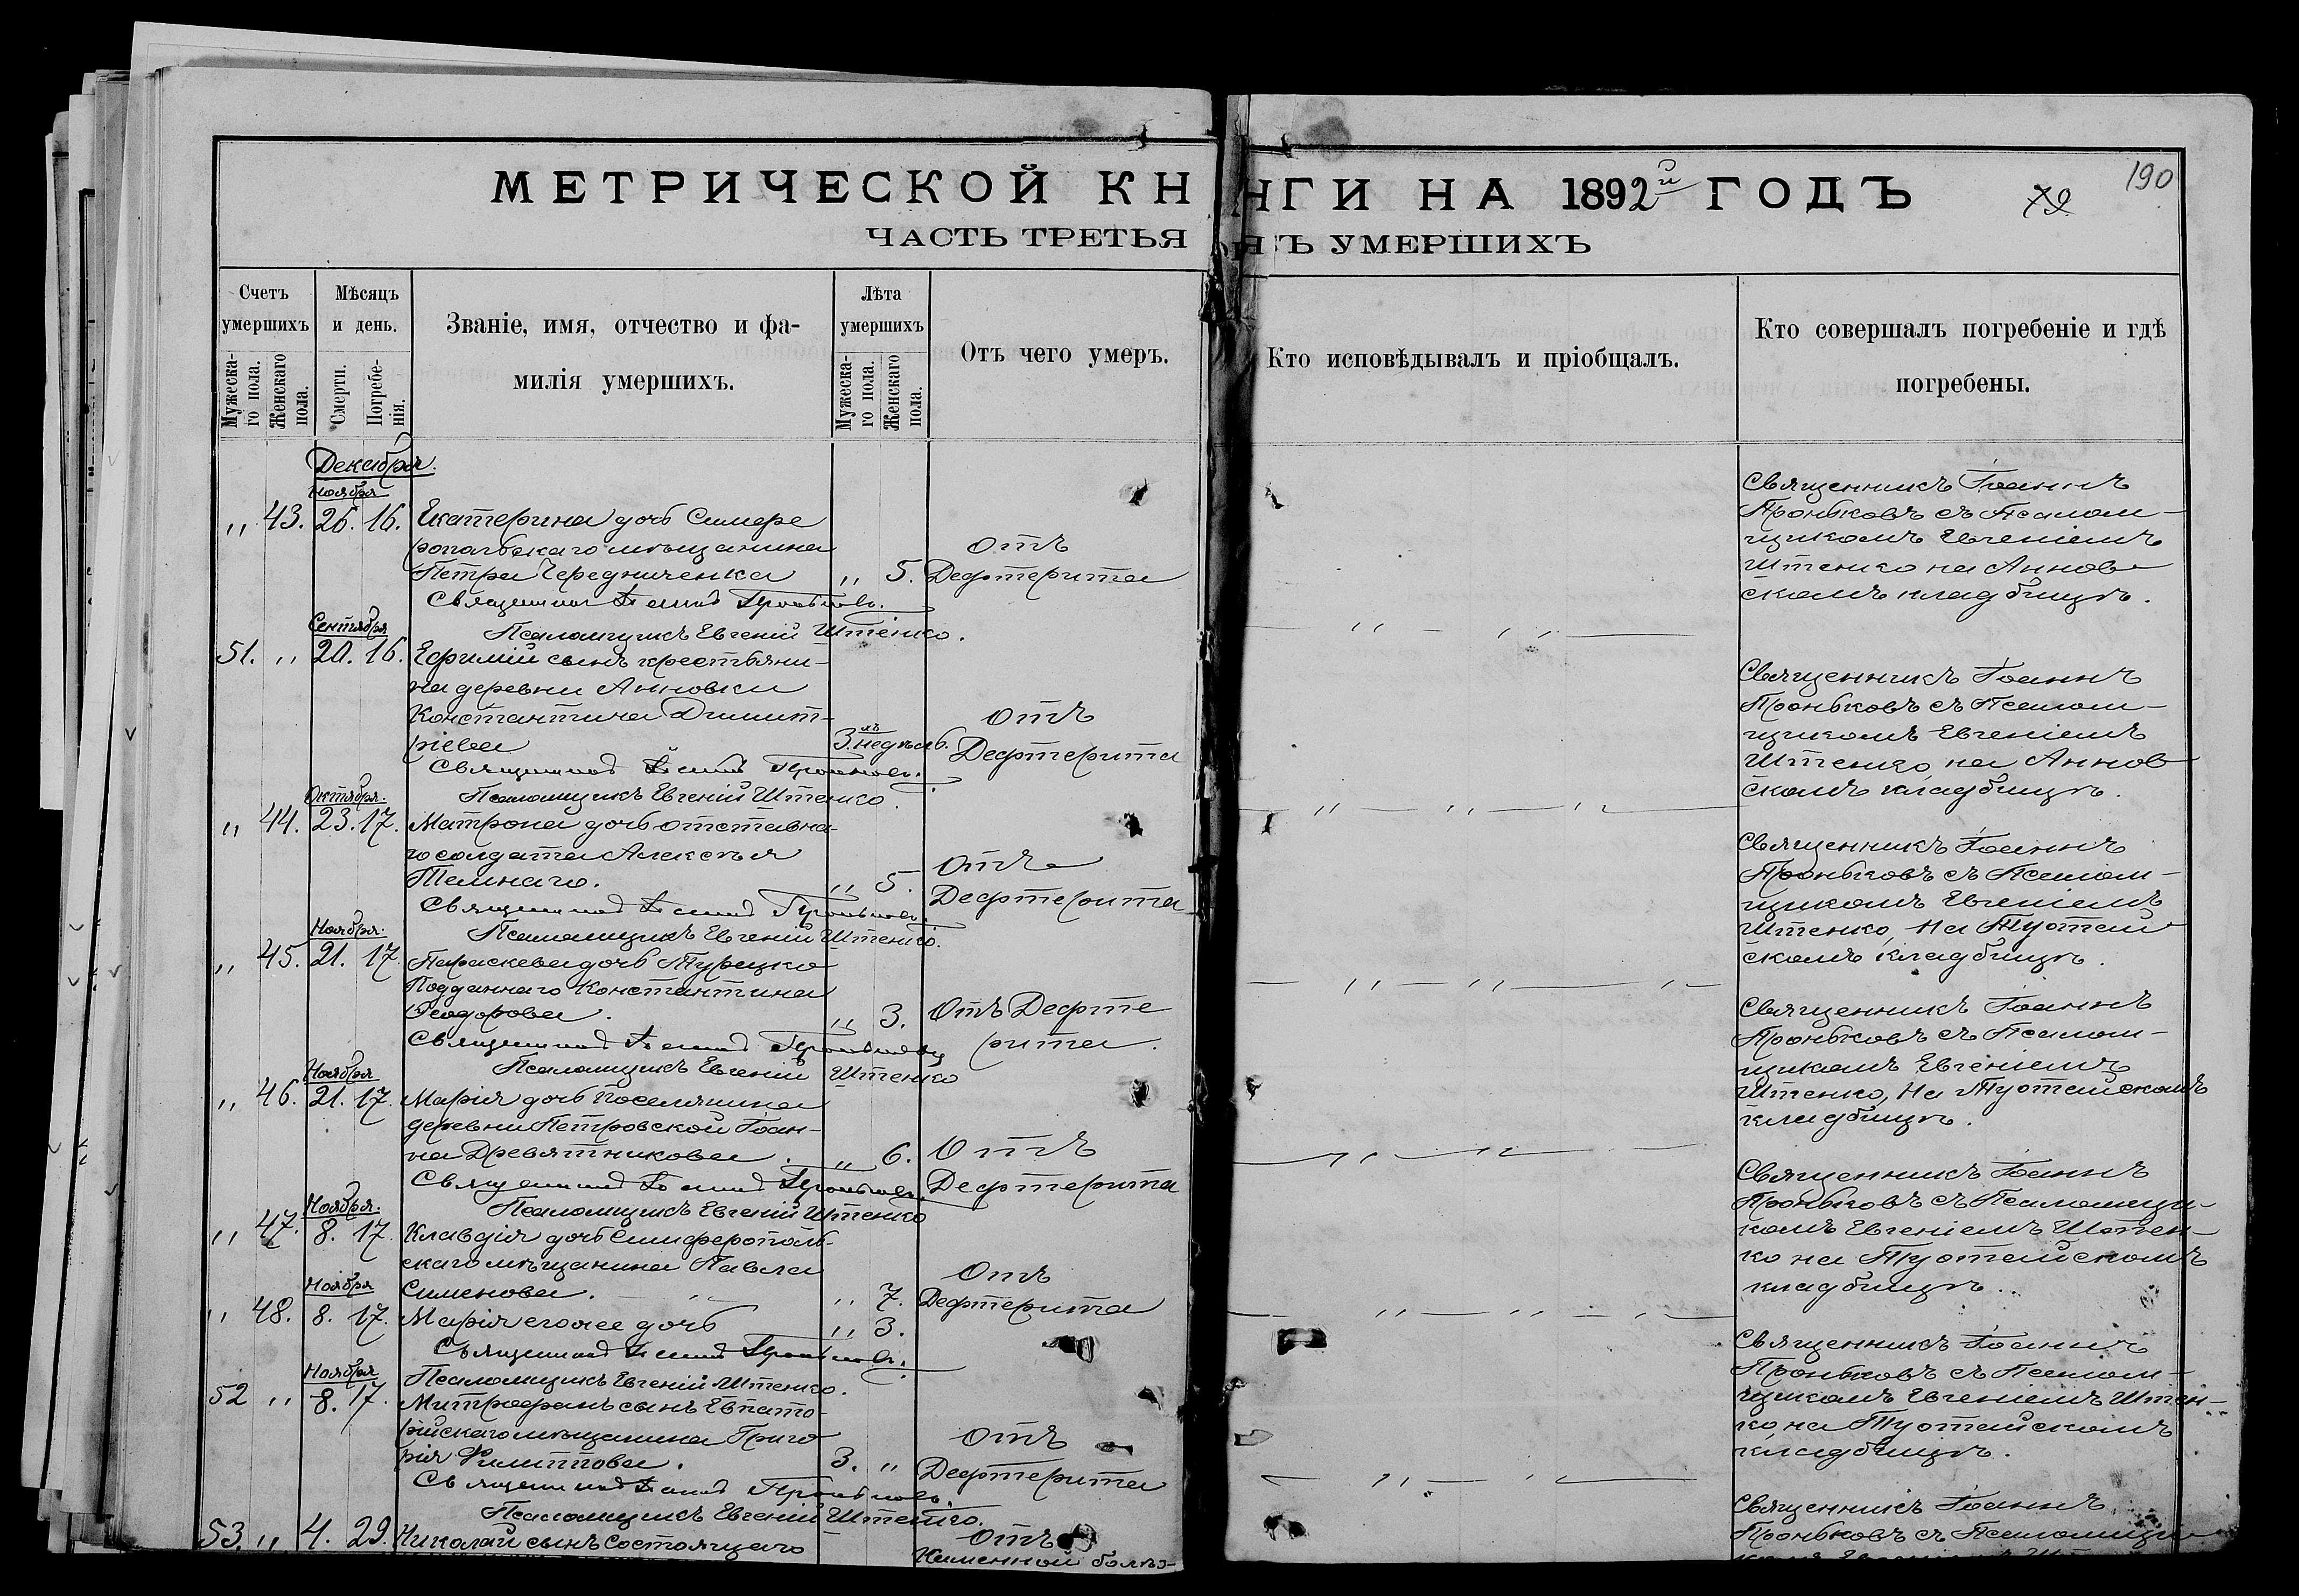 МЕТРИЧЕСКОЙ КНИГИ НА 1892й ГОДЪ
190
ЧАСТЬ ТРЕТЬЯ УМЕРШИХЪ
Счетъ умершихъ
Мужеска-го пола.
Женскаго пола.
Мѣсяцъ и день.
Смерти.
Погребе-нія.
Званіе, имя, отчество и фа-
милія умершихъ.
Лѣта умершихъ
Мужеска-го пола.
Женскаго пола.
Отъ чего умеръ.
Кто исповѣдывалъ и пріобщалъ.
Кто совершалъ погребеніе и гдѣ
погребены.
Декабря.
Ноября
„ 43. 26. 16. Екатерина дочь Симфе
ропольскаго мѣщанина
Петра Чередниченка „ 5.
Отъ
Дефтерита
Священникъ Іоаннъ Проньковъ.
Псаломщикъ Евгеній Штенко.
Священникъ Іоаннъ
Проньковъ съ Псалом-
щикомъ Евгеніемъ
Штенко на Аннов-
скомъ кладбищѣ.
Сентября
51. „ 20. 16. Ефимій сынъ крестьяни-
на деревни Анновки
Константина Димит-
ріева
3. недѣль.
Отъ
Дефтерита
Священникъ Іоаннъ Проньковъ.
Псаломщикъ Евгеній Штенко.
Священникъ Іоаннъ
Проньковъ съ Псалом-
щикомъ Евгеніемъ
Штенко на Аннов
скомъ кладбищѣ.
Октября.
„ 44. 23. 17. Матрона дочь отставна-
го солдата Алексѣя
Темнаго. „ 5.
Отъ
Дефтерита
Священникъ Іоаннъ Проньковъ.
Псаломщикъ Евгеній Штенко.
Священникъ Іоаннъ
Проньковъ съ Псалом-
щикомъ Евгеніемъ
Штенко, на Туотай
скомъ кладбищѣ.
Ноября.
„ 45. 21. 17. Параскева дочь Турецко
Подданнаго Константина
Феодорова. „ 3.
Отъ Дефте
рита.
Священникъ Іоаннъ Проньковъ
Псаломщикъ Евгеній Штенко
Священникъ Іоаннъ
Проньковъ съ Псалом-
щикомъ Евгеніемъ
Штенко, на Туотайскомъ
кладбищѣ.
Ноября
„ 46. 21. 17. Марія дочь Поселянина
деревни Петровской Іоан-
на Древятникова. „ 6.
Отъ
Дефтерита
Священникъ Іоаннъ Проньковъ.
Псаломщикъ Евгеній Штенко
Священникъ Іоаннъ
Проньковъ съ Псаломщи-
комъ Евгеніемъ Штен-
ко на Туотайскомъ
кладбищѣ.
Ноября.
„ 47. 8. 17. Клавдія дочь Симферополь-
скаго мѣщанина Павла
Сименова. „ 7.
Отъ
Дефтерита
Ноября
„ 48. 8. 17. Марія егоже дочь „ 3.
Священникъ Іоаннъ Проньковъ.
Псаломщикъ Евгеній Штенко.
Священникъ Іоаннъ
Проньковъ съ Псалом-
щикомъ Евгеніемъ Штен-
ко, на Туотайскомъ
кладбищѣ.
Ноября
52 „ 8. 17. Митрофанъ сынъ Евпато-
рійскаго мѣщанина Григо
рія Филиппова. 3. „
Отъ
Дефтерита
Священникъ Іоаннъ Проньковъ.
Псаломщикъ Евгеній Штенко.
Священникъ Іоаннъ
Проньковъ съ Псаломщи
53. „ 4. 29. Николай сынъ Состоящаго
Отъ
Каменной болѣз-